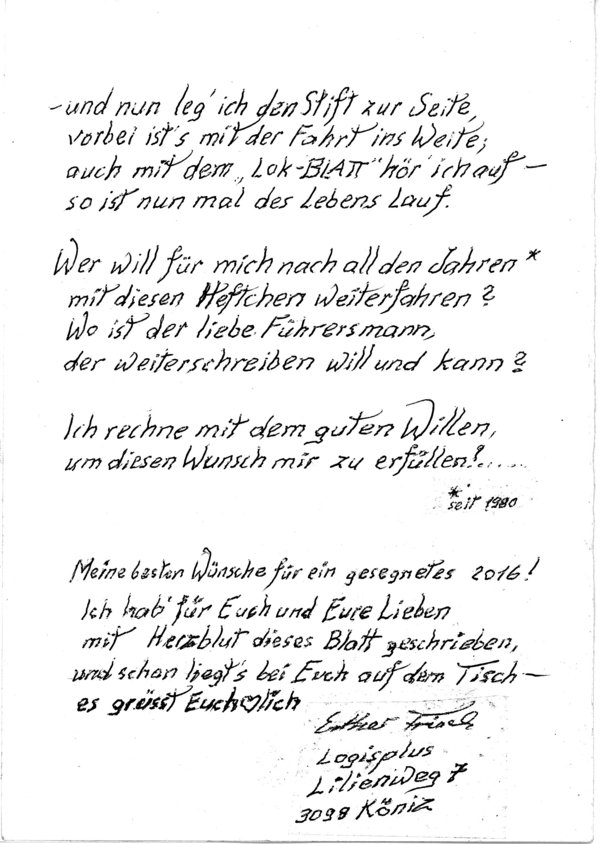 – und nun leg' ich den Stift zur Seite,
vorbei ist's mit der Fahrt ins Weite;
auch mit dem „Lok-BLATT" hör' ich auf –
so ist nun mal des Lebens Lauf.
Wer will für mich nach all den Jahren *
mit diesen Heftchen weiterfahren?
Wo ist der liebe Führersmann,
der weiterschreiben will und kann?
Ich rechne mit dem guten Willen,
um diesen Wunsch mir zu erfüllen!.....
*
seit 1980
Meine besten Wünsche für ein gesegnetes 2016!
Ich hab' für Euch und Eure Lieben
mit Herzblut dieses Blatt geschrieben,
und schon liegt's bei Euch auf dem Tisch –
es grüsst Euch ♡lich
Esther Frisch
Logisplus
Lilienweg 7
3098 Köniz